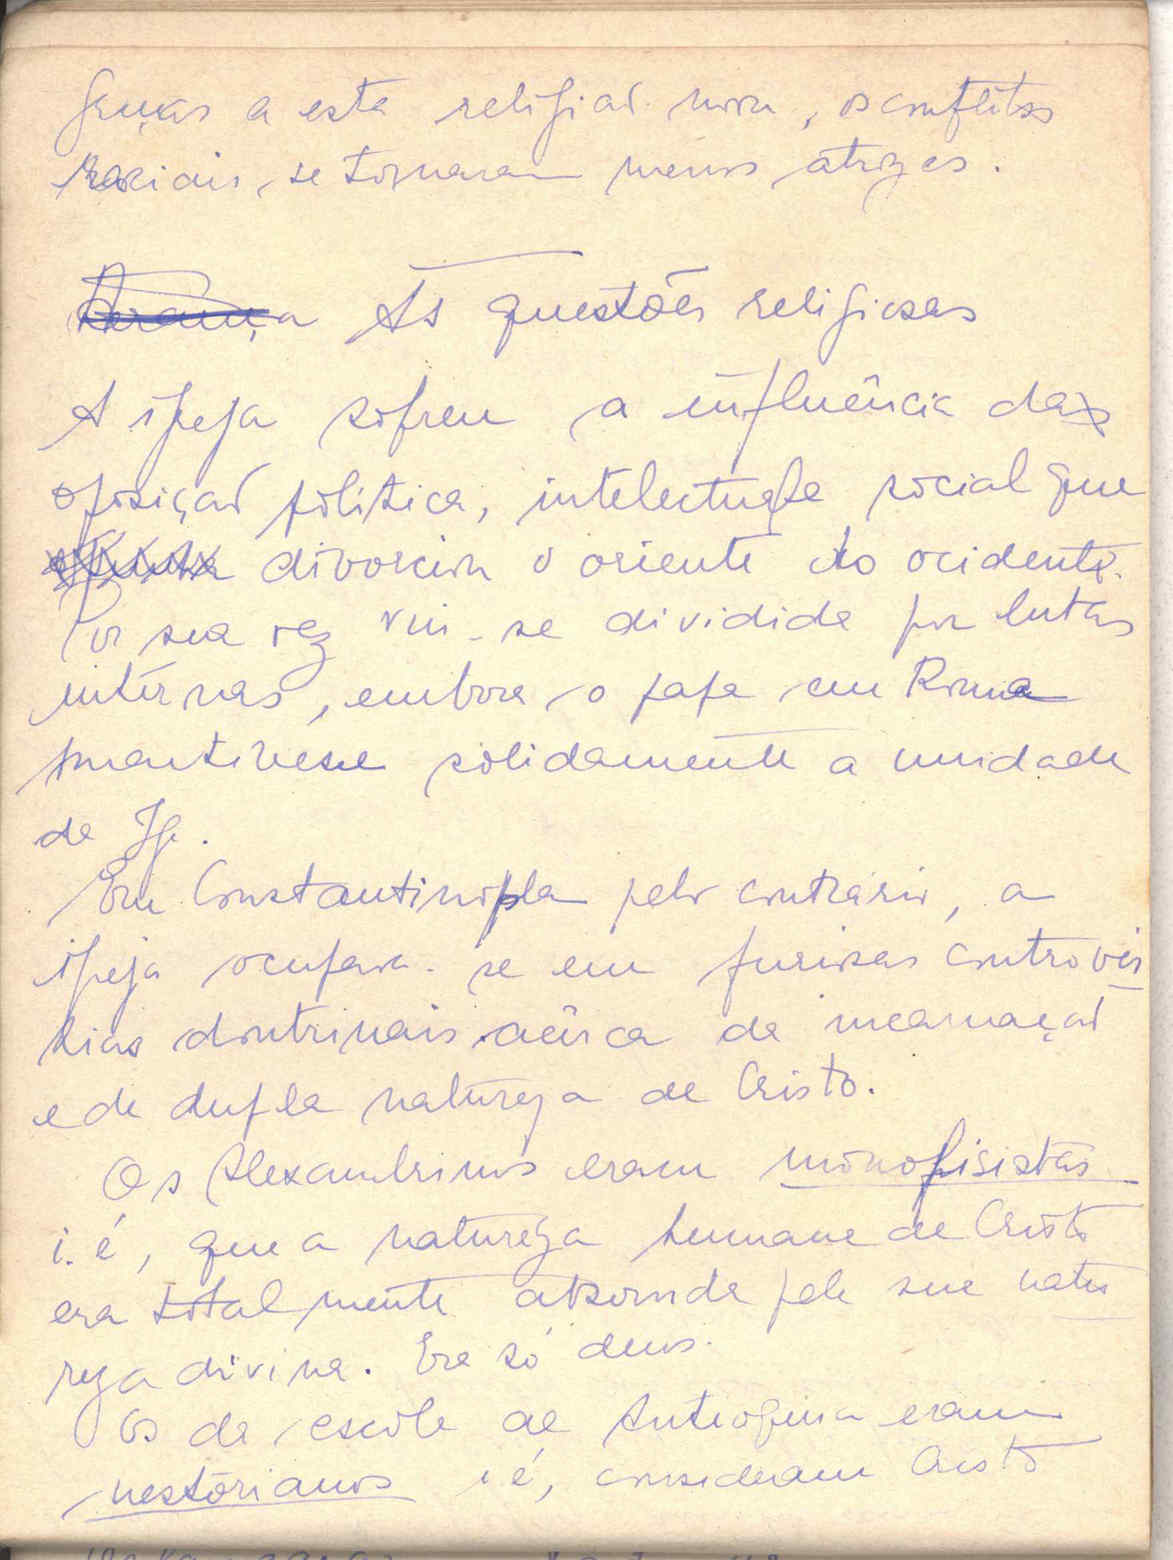 graças a esta religião nova, os conflitos
raciais, se tornaram menos atrozes.
As questões religiosas
A igreja sofreu a influência das
oposição política, intelectual e social que
divorciou o oriente do ocidente.
Por sua vez viu-se dividida por lutas
internas, embora o papa em Roma
mantivesse solidamente a unidade
da Ig.
Em Constantinopla pelo contrário, a
igreja ocupava-se em furiosas controvér
sias doutrinais acêrca da incarnação
e de dupla natureza de Cristo.
Os Alexandrinos eram monofisistas
i. é, que a natureza humana de Cristo
era totalmente absorvida pela sua natu
reza divina. Era só deus.
Os da escola de Antioquia eram
nestorianos i é, consideram Cristo